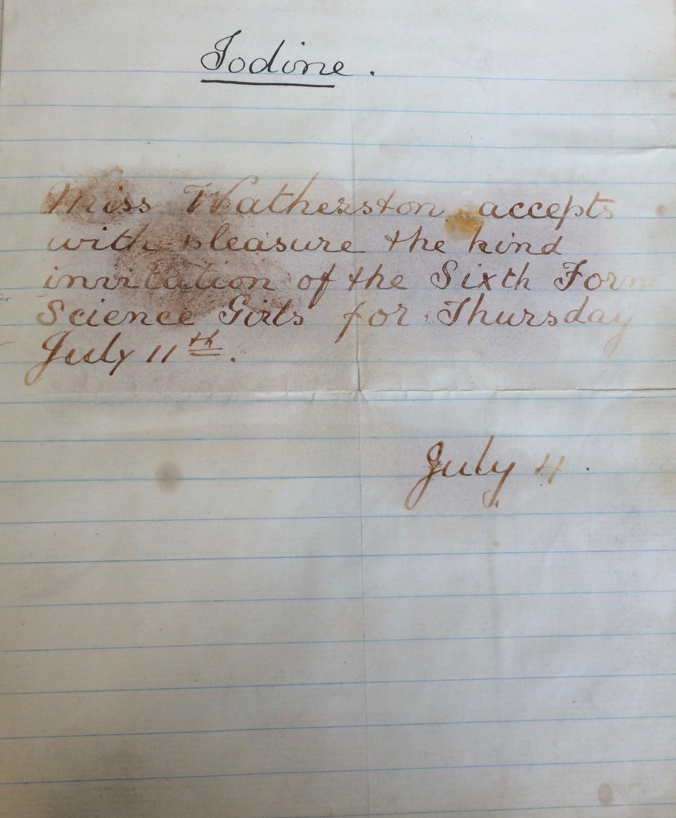 Iodine.
Miss Watherston accepts
with pleasure the kind
invitation of the Sixth Form
Science Girls for Thursday
July 11th.
July 4.